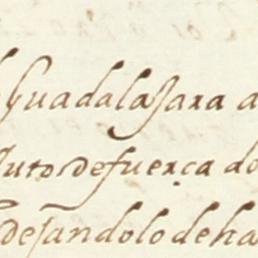 Guadalajara a
Auto de fuerça do
dejandolo de ha